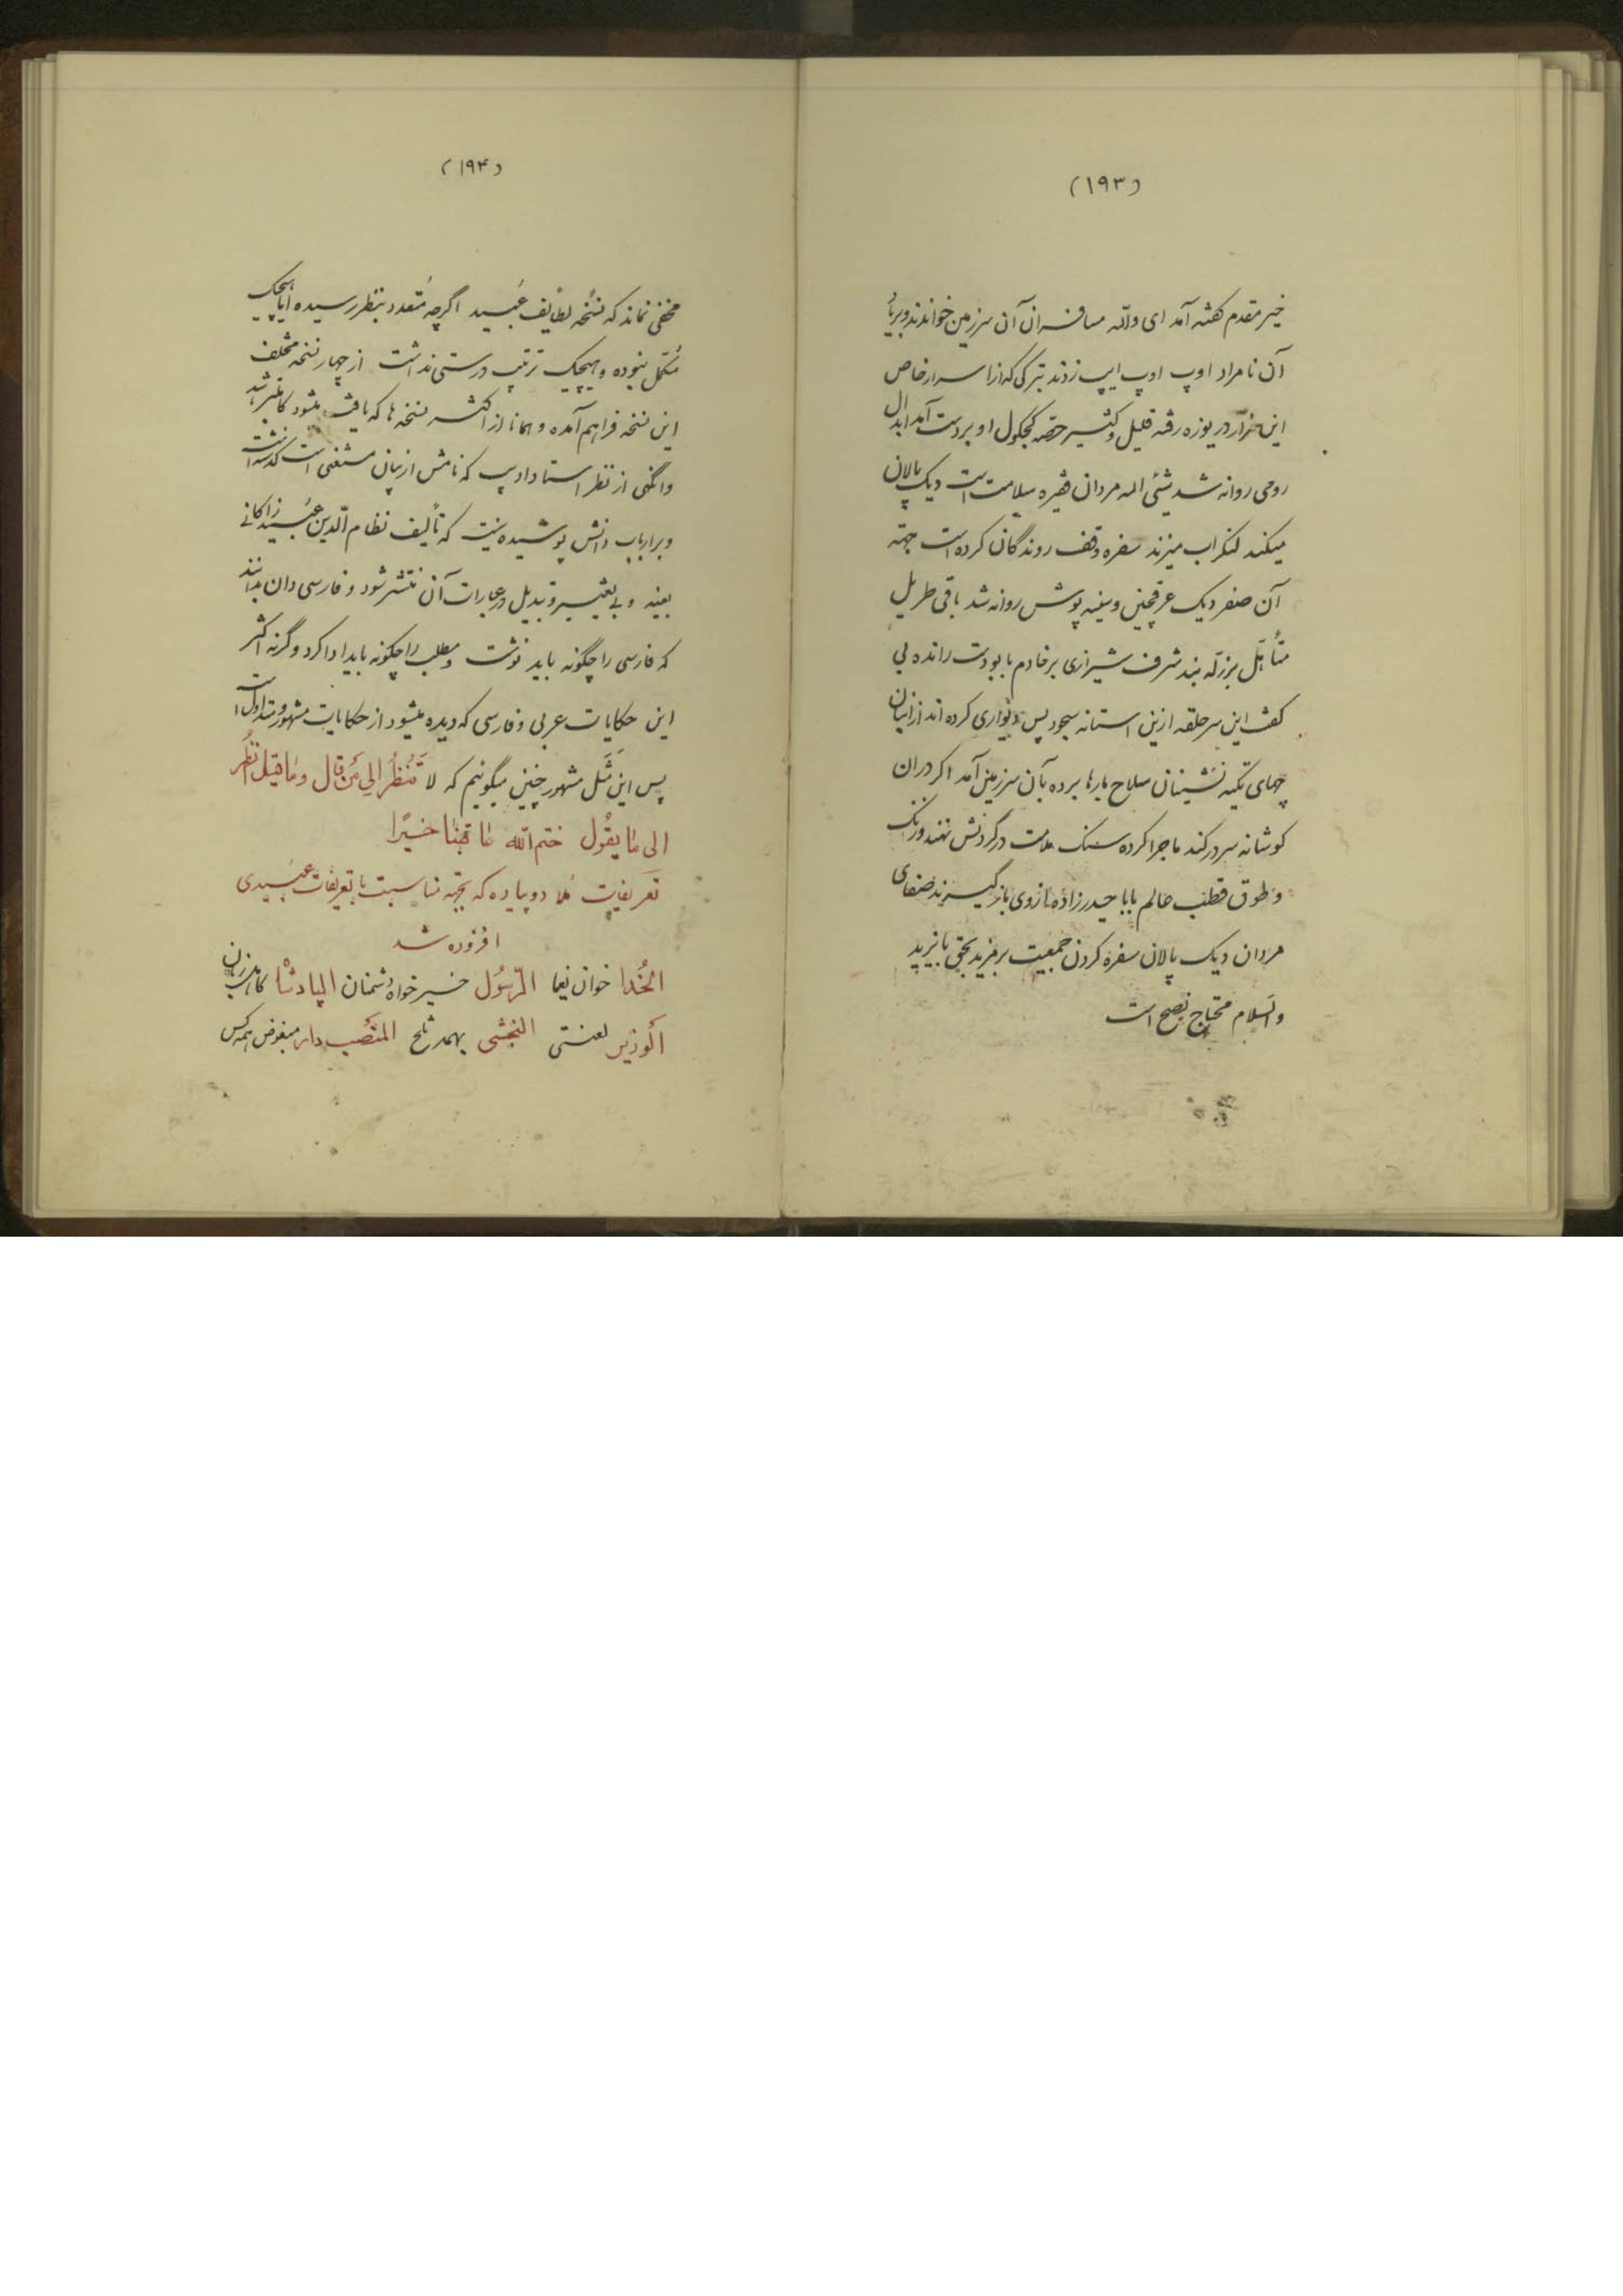 (۱۹۳)
خیر مقدم گفته آمد ای والله مسافران آن سرزمین خواندند و بریاد
آن نامراد اوپ اوپ ایپ زدند تبرکی که از اسرار خاص
این در یوزه رفته قلیل و کثیر حصه کجکول او بر دست آمد ابدال
رومی روانه شد شئی الله مردان فقیره سلامت است دیک پالان
میکند لنکر اب میزند سفره وقف روندگان کرده است جهته
آن صفر دیک عرقچین و سینه پوش روانه شد باقی طریل
متأهل بزرله بند شرف شیرازی بر خادم بابو دست رانده لی
کفت این سر حلقه ازین استانه سجود پس دیواری کرده اند از انبان
چهای تکیه نشینان سلاح یارها برده بآن سرزمین آمد اکر در ان
کوشانه سر در کند ماجرا کرده سنک ملامت در گردنش نهند و زنک
و طوق قطب عالم بابا حیدر زاده از وی باز گیرند صفای
مردان دیک پالان سفره کردن جمعیت بر مزید بحق بایزید
والسلام محتاج نصح است
(۱۹۴)
مخفی نماند که نسخه لطایف عبید اگرچه متعدد بنظر رسیده اما هیچیک
مکمل نبوده و هیچیک ترتیب درستی نداشت از چهار نسخه مختلف
این نسخه فراهم آمده و همانا از اکثر نسخه ها که یافت میشود کاملتر باشد
وانگهی از نظر استاد ادیب که نامش از بیان مستغنی است گذشته است
و بر ارباب دانش پوشیده نیست که تألیف نظام الدین عبید زاکانی
بعینه و بی تغییر و تبدیل در عبارات آن منتشر شود و فارسی دان بدانند
که فارسی را چگونه باید نوشت و مطلب را چگونه باید ادا کرد و گرنه اکثر
این حکایات عربی و فارسی که دیده میشود از حکایات مشهور و متداول است
پس این مثل مشهور چنین میگوئیم که لا تنظر الی من قال و ما قیل انظر
الی ما یقول ختم الله مآقبنا خیرا
تعریفات ملا دوپیازه که بجهته مناسبت با تعریفات عبیدی
افزوده شد
الخدا خوان یغما الرسول خیر خواه دشمنان الپادشاه
الوزیر لعنتی البخشی بهمه تلخ المنصب دار مبغوض همه کس